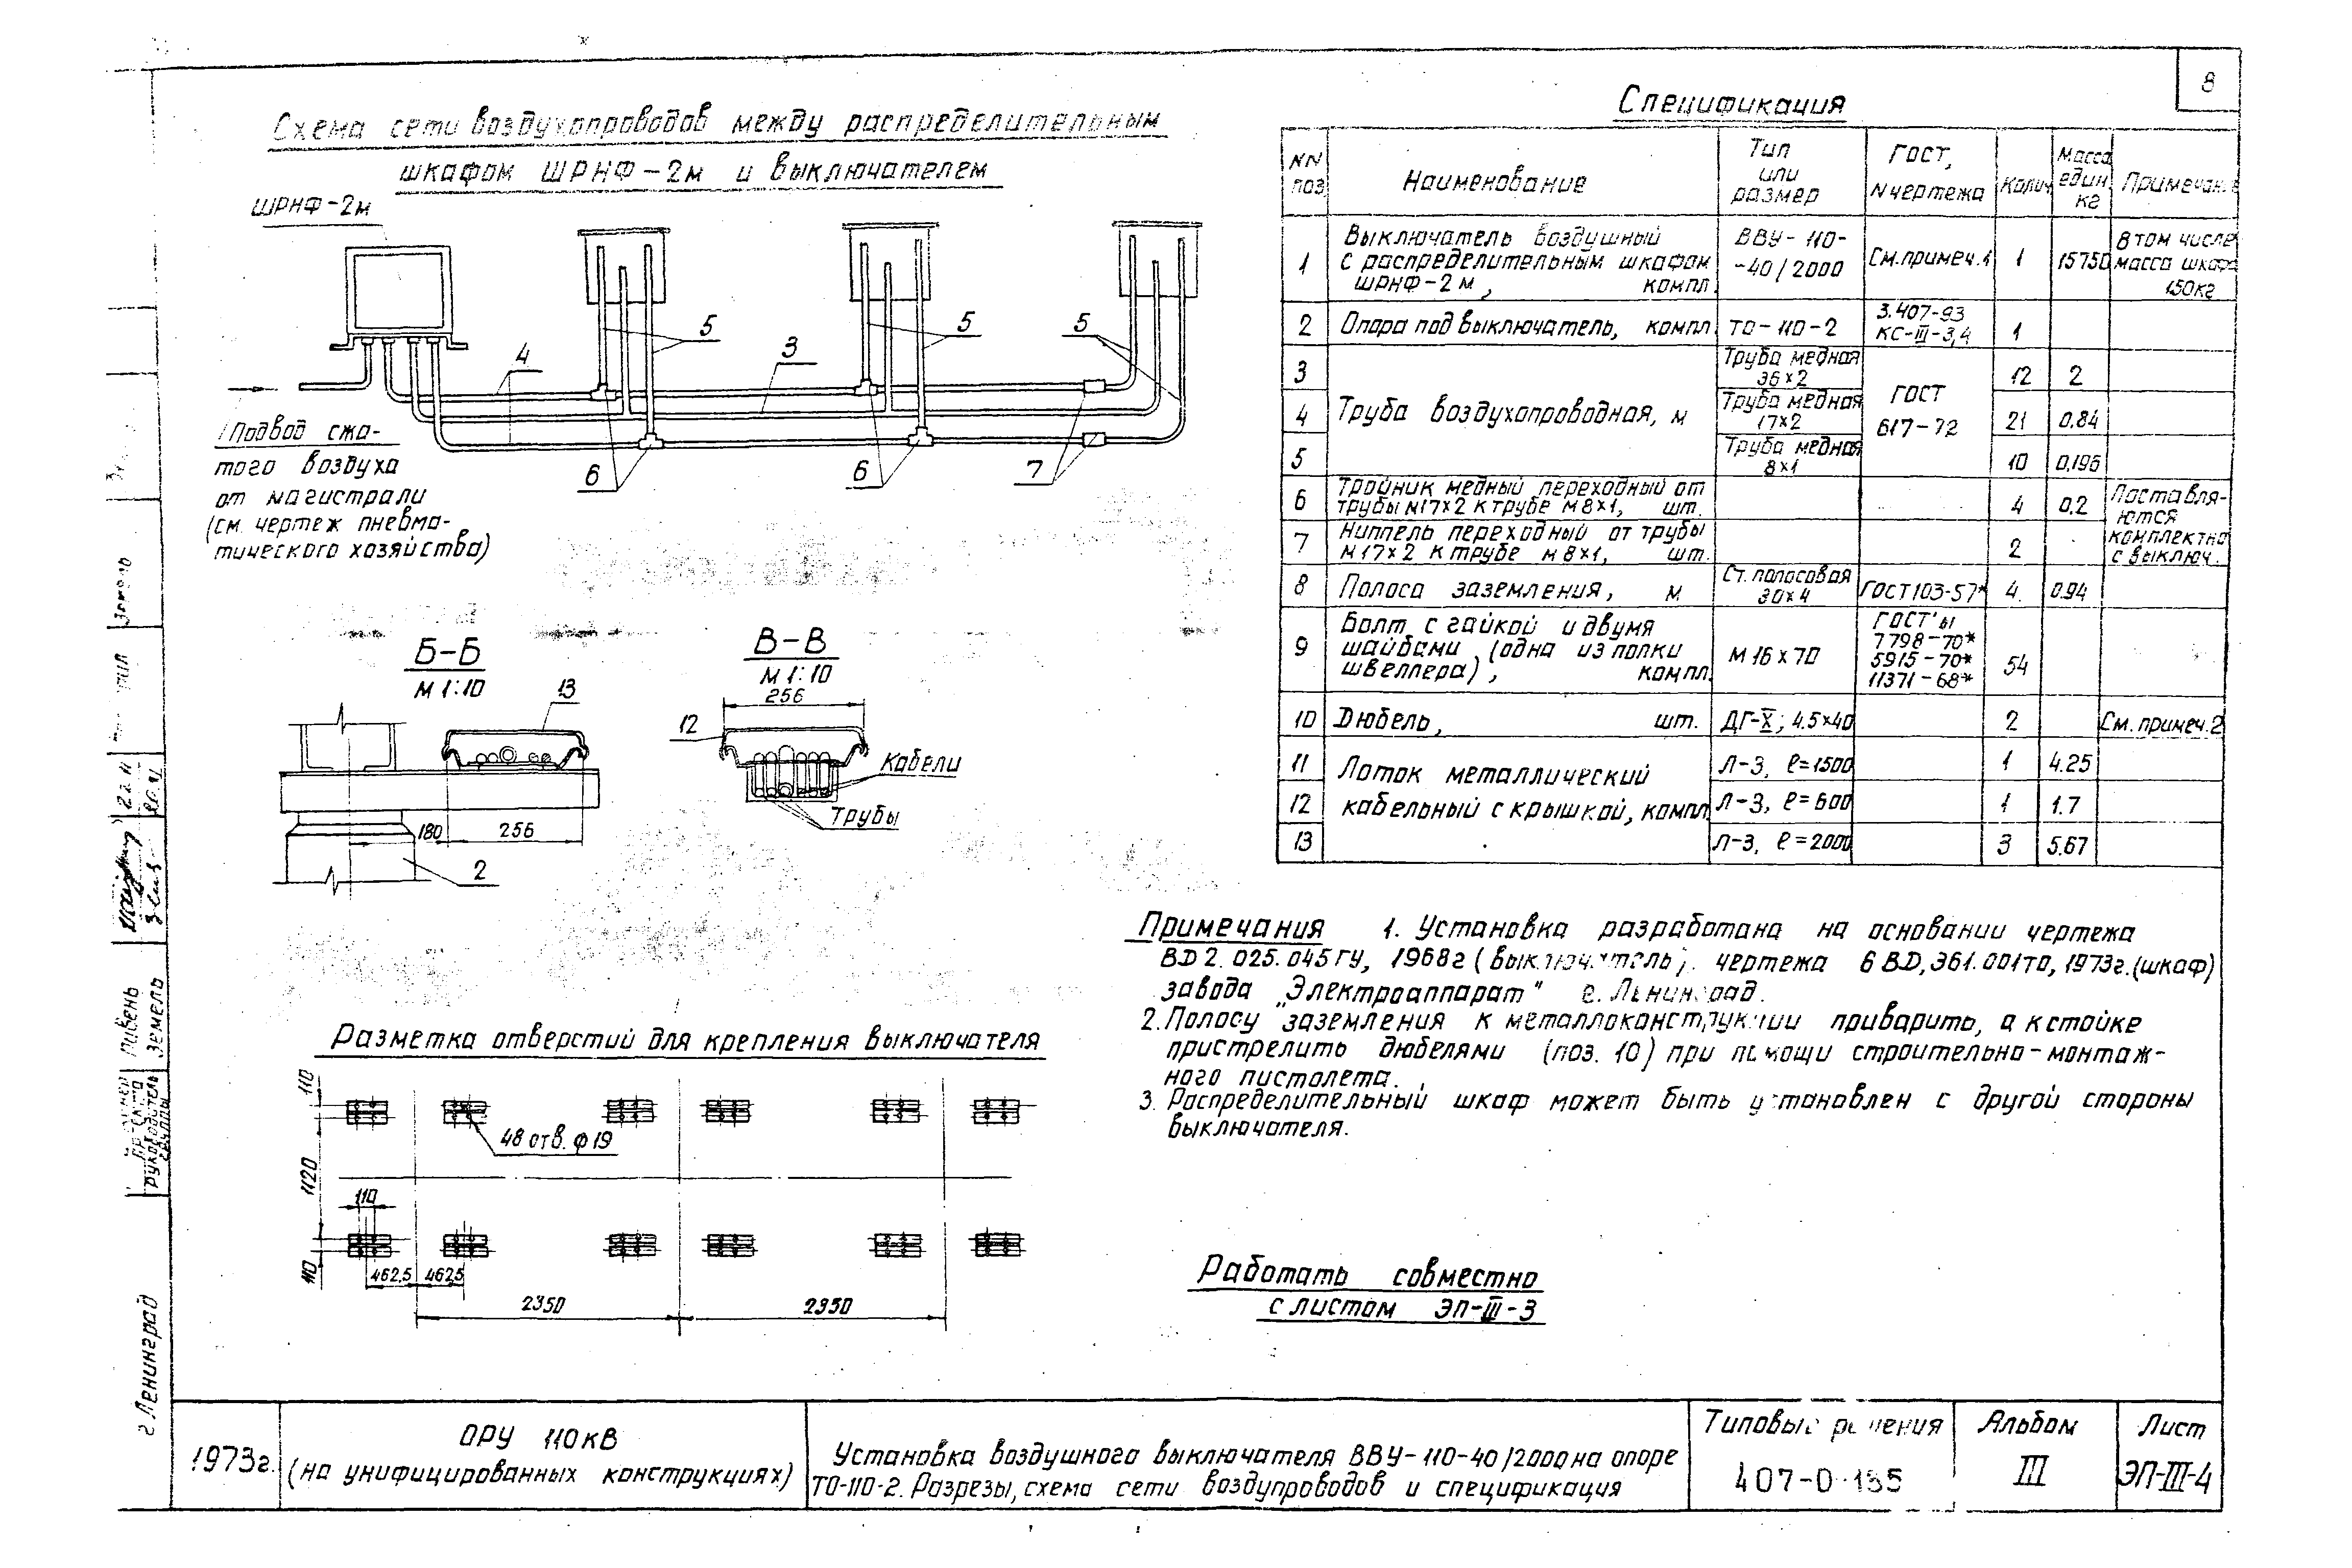 8
Схема сети воздухопроводов между распределительным
шкафом ШРНФ-2м и выключателем
ШРНФ-2м
5
5
5
4
3
Подвод сжа-
того воздуха
от магистрали
(см. чертеж пневма-
тического хозяйства)
6
6
7
Б-Б
М 1:10
13
180
256
2
В-В
М 1:10
256
12
Кабели
Трубы
Разметка отверстий для крепления выключателя
110
48 отв. ф19
1120
110
110
462,5
462,5
2350
2350
Спецификация
NN поз
Наименование
Тип или размер
ГОСТ, N чертежа
Колич.
Масса един. кг
1
Выключатель воздушный
с распределительным шкафом
ШРНФ-2м, компл.
ВВУ-110-
-40/2000
См.примеч.1
1
15750
В том числе
масса шкафа
150кг
2
Опора под выключатель, компл.
ТО-110-2
3.407-93
КС-III-3,4
1
3
Труба воздухопроводная, м
Труба медная
36×2
ГОСТ
617-72
12
2
4
Труба медная
17×2
21
0,84
5
Труба медная
8×1
10
0,195
6
Тройник медный переходный от
трубы М17×2 к трубе М8×1, шт.
4
0,2
Поставля-
ются
комплектно
с выключ.
7
Ниппель переходный от трубы
М17×2 к трубе М8×1, шт.
2
8
Полоса заземления, м
Ст. полосовая
30×4
ГОСТ103-57*
4
0.94
9
Болт с гайкой и двумя
шайбами (одна из полки
швеллера), компл.
М16×70
ГОСТ'ы
7798-70*
5915-70*
11371-68*
54
10
Дюбель, шт.
ДГ-X; 4.5×40
2
См. примеч.2
11
Лоток металлический
кабельный с крышкой, компл.
Л-3, ℓ=1500
1
4.25
12
Л-3, ℓ=600
1
1.7
13
Л-3, ℓ=2000
3
5.67
Примечания 1. Установка разработана на основании чертежа
ВД 2.025.045ГУ, 1968г (выключатель), чертежа 6ВД,361.001ТО, 1973г.(шкаф)
завода „Электроаппарат" г. Ленинград.
2. Полосу заземления к металлоконструкции приварить, а к стойке
пристрелить дюбелями (поз. 10) при помощи строительно-монтаж-
ного пистолета.
3. Распределительный шкаф может быть установлен с другой стороны
выключателя.
Работать совместно
с листом ЭП-III-3
Пивень
Земель
руководитель
группы
г Ленинград
1973г.
ОРУ 110кВ
(на унифицированных конструкциях)
Установка воздушного выключателя ВВУ-110-40/2000 на опоре
ТО-110-2. Разрезы, схема сети воздупроводов и спецификация
Типовые решения
407-0-135
Альбом
III
Лист
ЭП-III-4